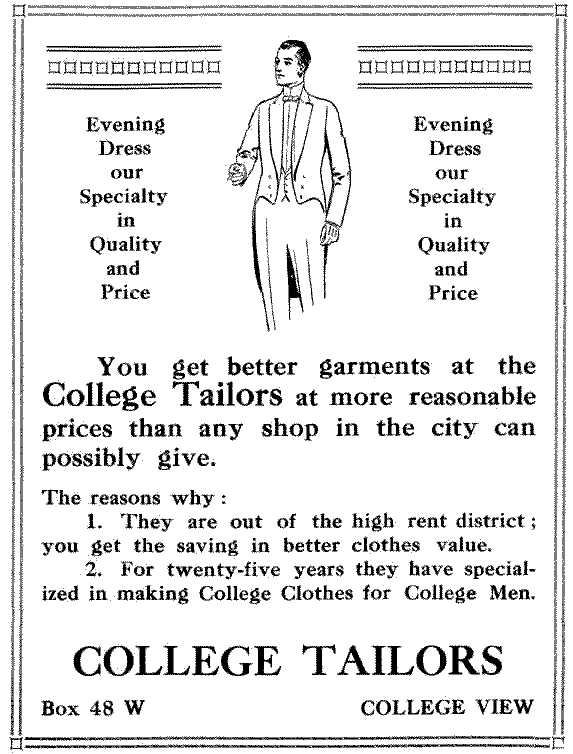 Evening
Dress
our
Specialty
in
Quality
and
Price
Evening
Dress
our
Specialty
in
Quality
and
Price
You get better garments at the
College Tailors at more reasonable
prices than any shop in the city can
possibly give.
The reasons why :
1. They are out of the high rent district ;
you get the saving in better clothes value.
2. For twenty-five years they have special-
ized in making College Clothes for College Men.
COLLEGE TAILORS
Box 48 W COLLEGE VIEW